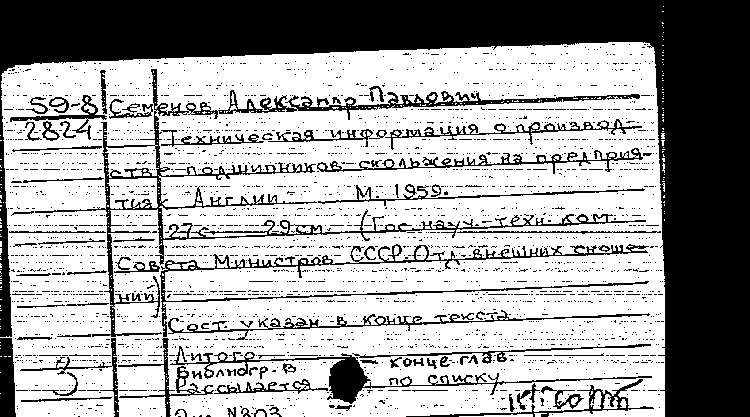 59-8 Семенов, Александр Павлович
2824 Техническая информация о производ-
стве подшипников скольжения на предприя-
тиях Англии. М., 1959.
27 с. 29 см. (Гос. науч.-техн. ком.
Совета Министров СССР. Отд. внешних сноше-
ний).
Сост. указан в конце текста.
Литогр.
Библиогр. в конце глав.
3 Рассылается по списку.